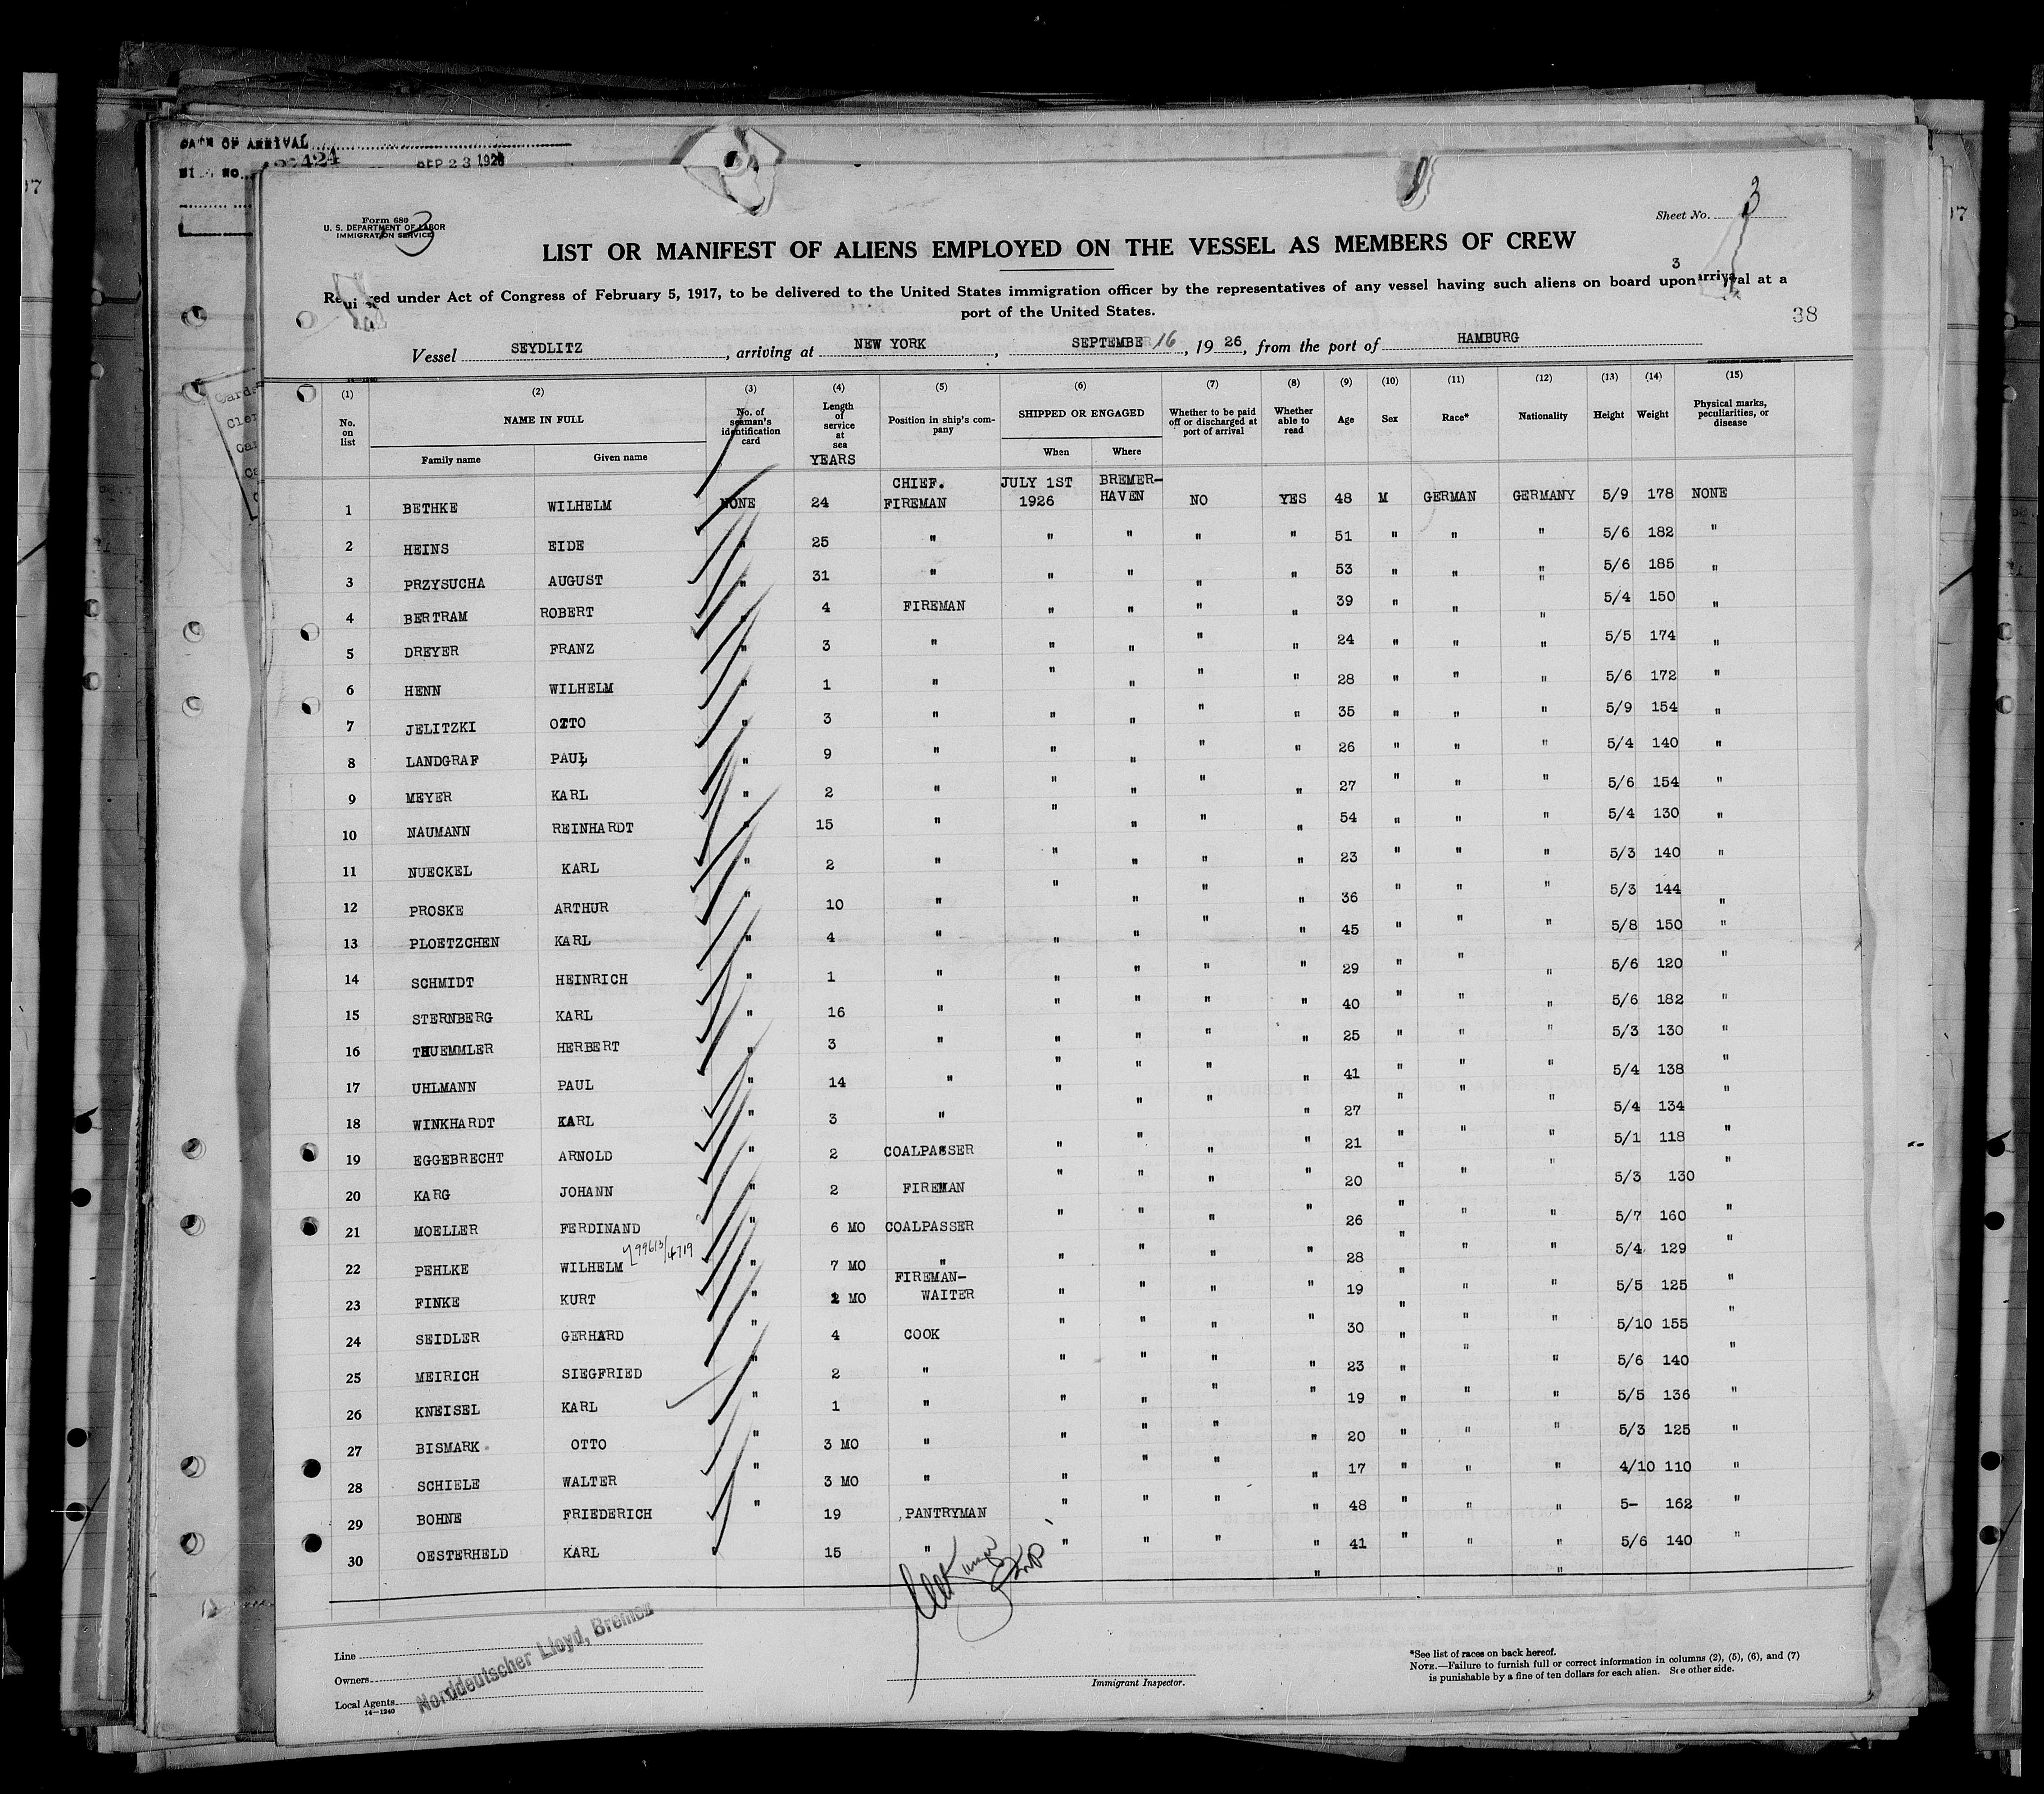 DATE OF ARRIVAL
SEP 23 1926
Form 680
U. S. DEPARTMENT OF LABOR
IMMIGRATION SERVICE
3
Sheet No. 3
LIST OR MANIFEST OF ALIENS EMPLOYED ON THE VESSEL AS MEMBERS OF CREW
3
Required under Act of Congress of February 5, 1917, to be delivered to the United States immigration officer by the representatives of any vessel having such aliens on board upon arrival at a
port of the United States.
38
Vessel SEYDLITZ, arriving at NEW YORK, SEPTEMBER 16, 1926, from the port of HAMBURG
(1) (2) (3) (4) (5) (6) (7) (8) (9) (10) (11) (12) (13) (14) (15)
No. on list NAME IN FULL No. of seaman's identification card Length of service at sea Position in ship's company SHIPPED OR ENGAGED Whether to be paid off or discharged at port of arrival Whether able to read Age Sex Race* Nationality Height Weight Physical marks, peculiarities, or disease
Family name Given name YEARS When Where
1 BETHKE WILHELM NONE 24 CHIEF. FIREMAN JULY 1ST 1926 BREMER-HAVEN NO YES 48 M GERMAN GERMANY 5/9 178 NONE
2 HEINS EIDE " 25 " " " " " 51 " " " 5/6 182 "
3 PRZYSUCHA AUGUST " 31 " " " " " 53 " " " 5/6 185 "
4 BERTRAM ROBERT " 4 FIREMAN " " " " 39 " " " 5/4 150 "
5 DREYER FRANZ " 3 " " " " " 24 " " " 5/5 174 "
6 HENN WILHELM " 1 " " " " " 28 " " " 5/6 172 "
7 JELITZKI OTTO " 3 " " " " " 35 " " " 5/9 154 "
8 LANDGRAF PAUL " 9 " " " " " 26 " " " 5/4 140 "
9 MEYER KARL " 2 " " " " " 27 " " " 5/6 154 "
10 NAUMANN REINHARDT " 15 " " " " " 54 " " " 5/4 130 "
11 NUECKEL KARL " 2 " " " " " 23 " " " 5/3 140 "
12 PROSKE ARTHUR " 10 " " " " " 36 " " " 5/3 144 "
13 PLOETZCHEN KARL " 4 " " " " " 45 " " " 5/8 150 "
14 SCHMIDT HEINRICH " 1 " " " " " 29 " " " 5/6 120 "
15 STERNBERG KARL " 16 " " " " " 40 " " " 5/6 182 "
16 THUEMMLER HERBERT " 3 " " " " " 25 " " " 5/3 130 "
17 UHLMANN PAUL " 14 " " " " " 41 " " " 5/4 138 "
18 WINKHARDT KARL " 3 " " " " " 27 " " " 5/4 134 "
19 EGGEBRECHT ARNOLD " 2 COALPASSER " " " " 21 " " " 5/1 118 "
20 KARG JOHANN " 2 FIREMAN " " " " 20 " " " 5/3 130 "
21 MOELLER FERDINAND " 6 MO COALPASSER " " " " 26 " " " 5/7 160 "
99613/4719
22 PEHLKE WILHELM " 7 MO " " " " " 28 " " " 5/4 129 "
23 FINKE KURT " 2 MO FIREMAN-WAITER " " " " 19 " " " 5/5 125 "
24 SEIDLER GERHARD " 4 COOK " " " " 30 " " " 5/10 155 "
25 MEIRICH SIEGFRIED " 2 " " " " " 23 " " " 5/6 140 "
26 KNEISEL KARL " 1 " " " " " 19 " " " 5/5 136 "
27 BISMARK OTTO " 3 MO " " " " " 20 " " " 5/3 125 "
28 SCHIELE WALTER " 3 MO " " " " " 17 " " " 4/10 110 "
29 BOHNE FRIEDERICH " 19 PANTRYMAN " " " " 48 " " " 5- 162 "
30 OESTERHELD KARL 15 " " " " " 41 " " " 5/6 140 "
Line
Owners
Local Agents
14—1240
Norddeutscher Lloyd, Bremen
Immigrant Inspector.
*See list of races on back hereof.
NOTE.—Failure to furnish full or correct information in columns (2), (5), (6), and (7)
is punishable by a fine of ten dollars for each alien. See other side.